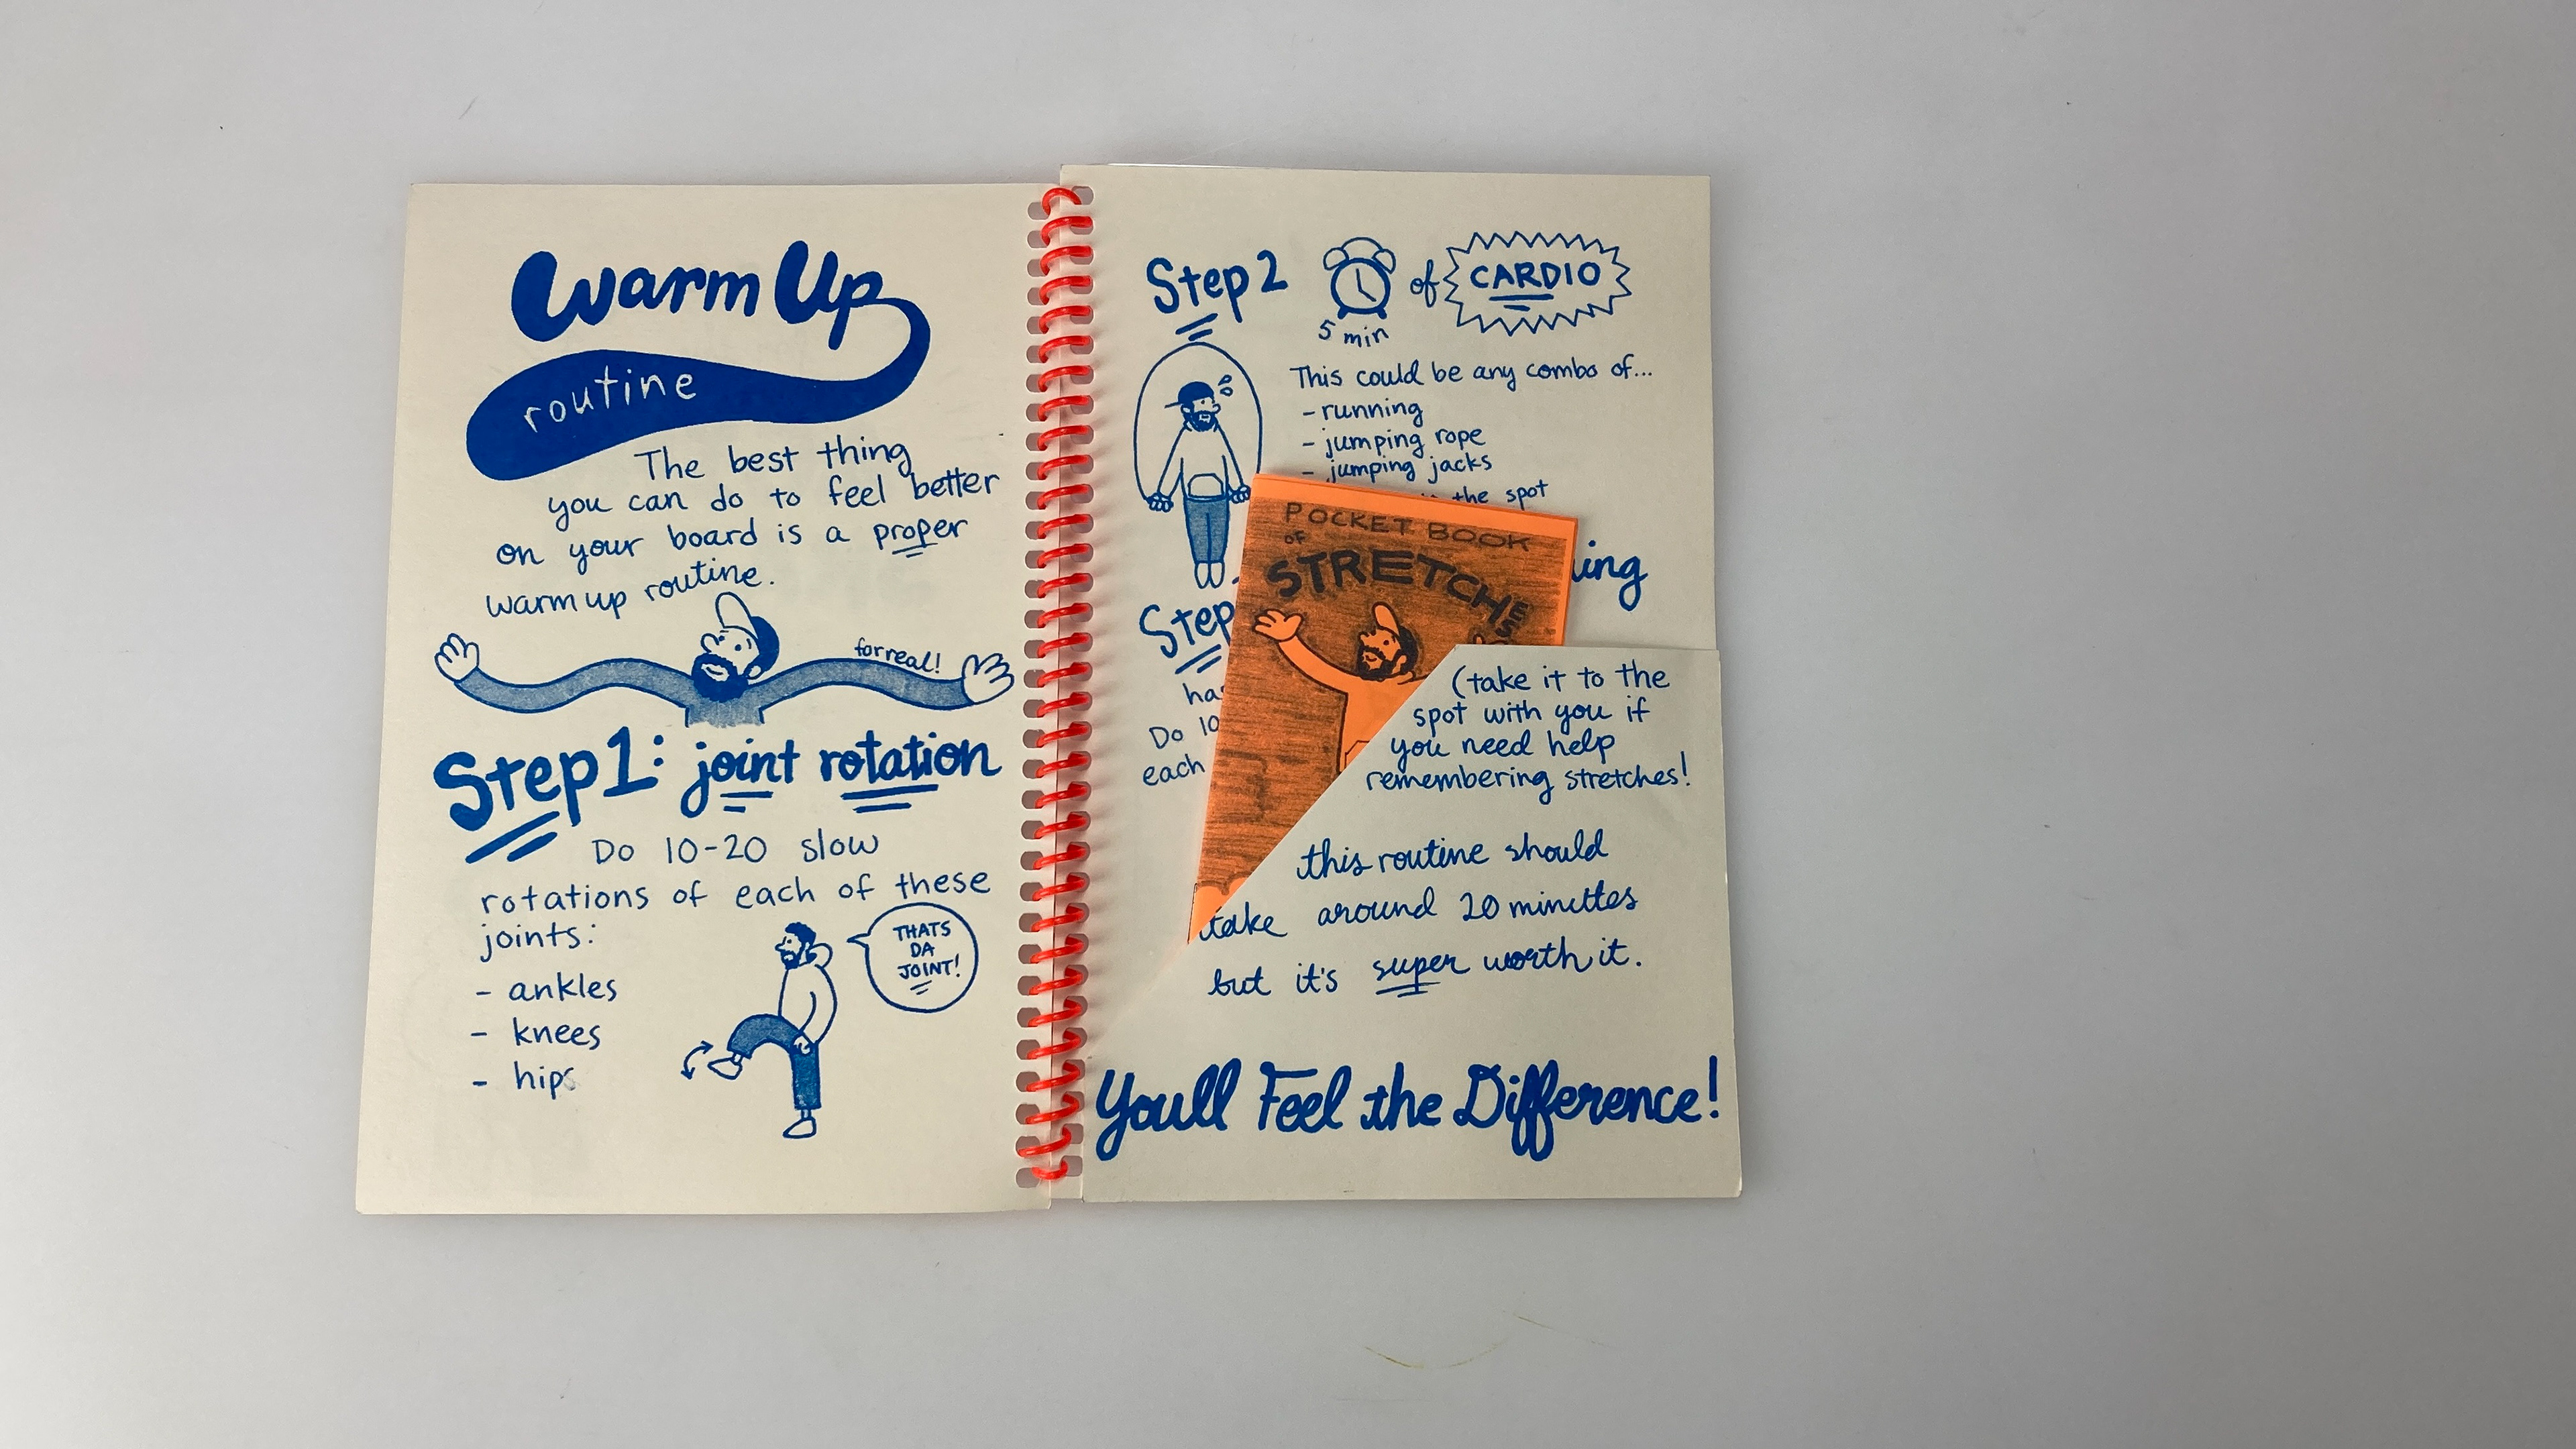 Warm Up
routine
The best thing
you can do to feel better
on your board is a proper
warm up routine.
for real!
Step 1: joint rotation
Do 10-20 slow
rotations of each of these
joints:
- ankles
- knees
- hips
THATS
DA
JOINT!
Step 2
5 min
of
CARDIO
This could be any combo of...
- running
- jumping rope
- jumping jacks
the spot
Step
Do 10
each
POCKET BOOK
OF
STRETCHES
(take it to the
spot with you if
you need help
remembering stretches!
this routine should
take around 20 minutes
but it's super worth it.
Youll Feel the Difference!